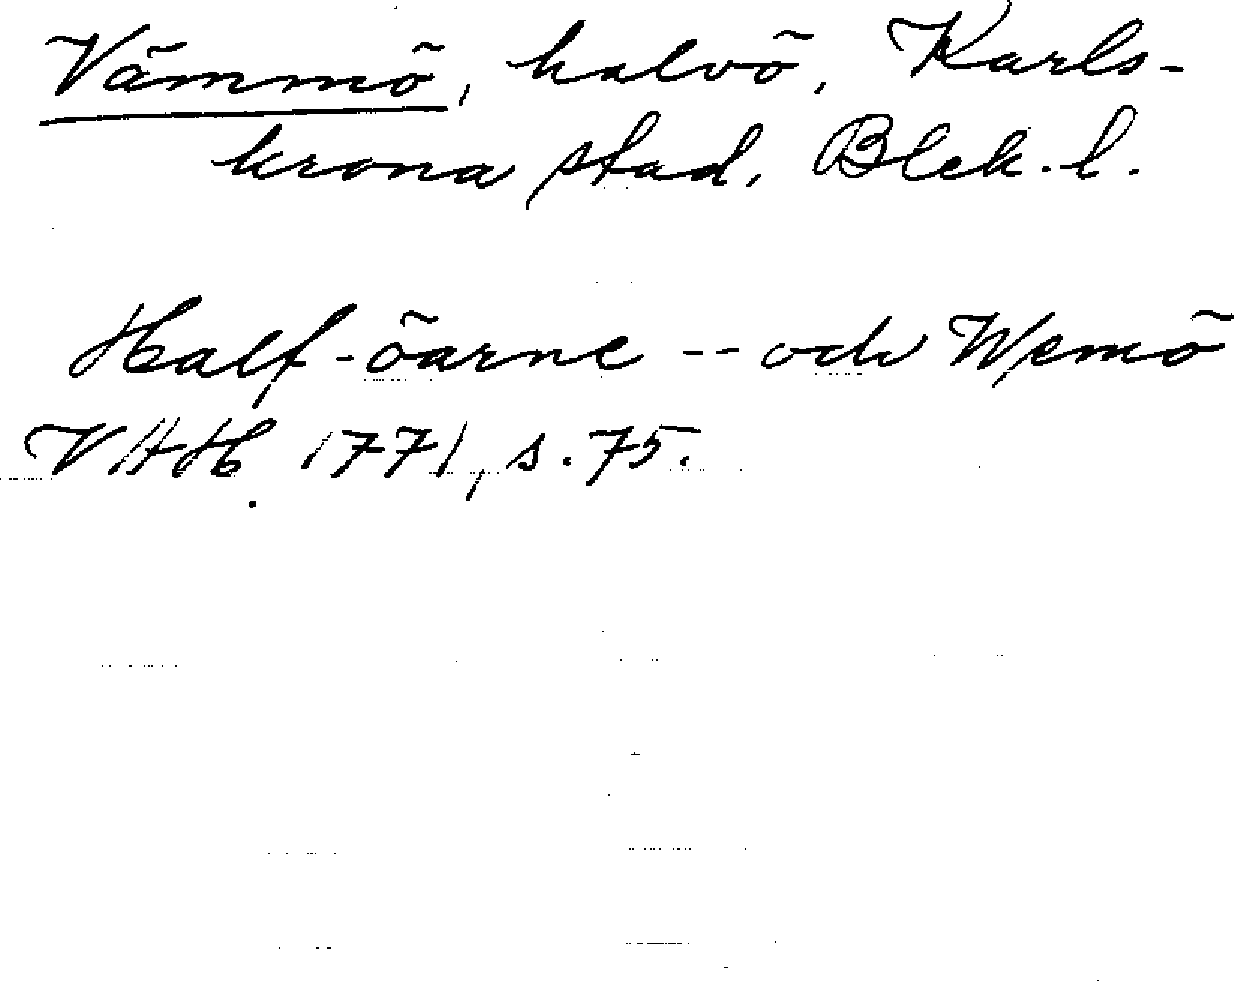 Vämmö, halvö, Karls-
krona stad, Blek. l.
Half-öarne -- och Wemö
VAH. 1771, s. 75.